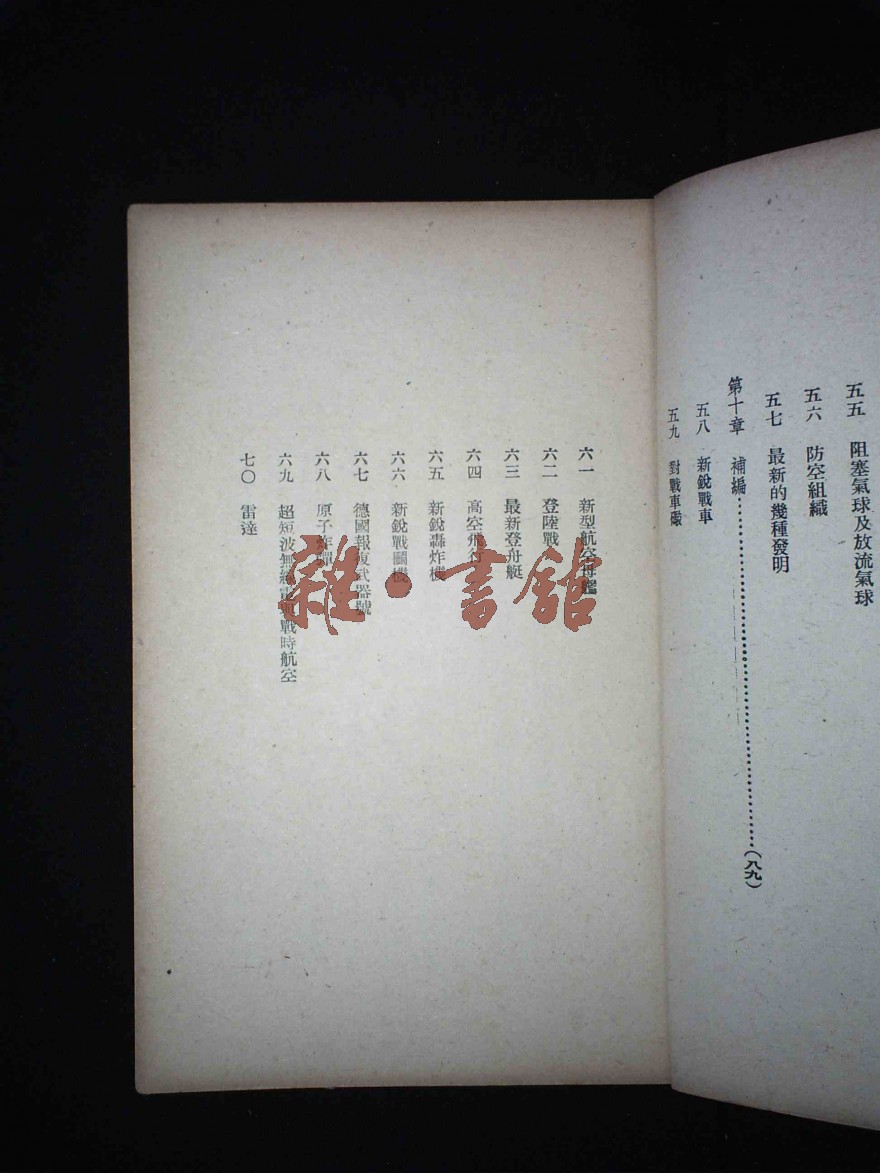 五五 阻塞氣球及放流氣球
五六 防空組織
五七 最新的幾種發明
第十章 補編……(八九)
五八 新銳戰車
五九 對戰車礮
六一 新型航空母艦
六二 登陸戰
六三 最新登舟艇
六四 高空飛行
六五 新銳轟炸機
六六 新銳戰鬪機
六七 德國報復武器號
六八 原子炸彈
六九 超短波無綫電與戰時航空
七〇 雷達
雜·書館